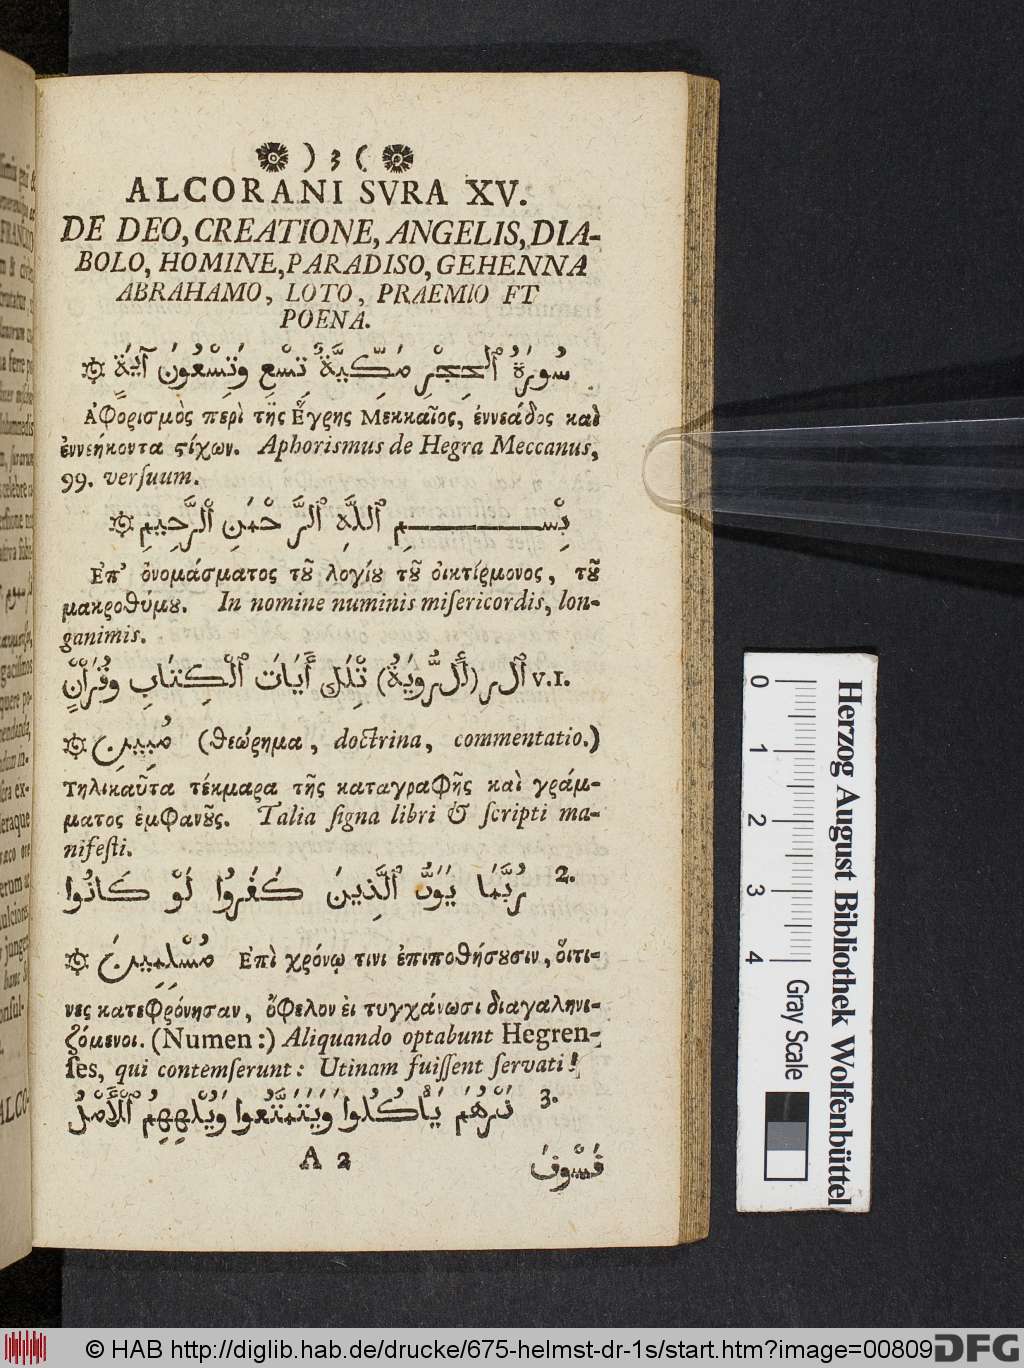 ) 3 (
ALCORANI SVRA XV.
DE DEO, CREATIONE, ANGELIS, DIA-
BOLO, HOMINE, PARADISO, GEHENNA
ABRAHAMO, LOTO, PRAEMIO ET
POENA.
سُورَةُ ٱلْحِجْرِ مَكِّيَّةٌ تِسْعِ وَتِسْعُونَ آيَةً
Ἀφορισμὸς περὶ τῆς Ἕγρης Μεκκαῖος, ἐννεάδος καὶ
ἐννεήκοντα ϛίχων. Aphorismus de Hegra Meccanus,
99. verſuum.
بِسْــــــمِ ٱللَّهِ ٱلرَّحْمَنِ ٱلرَّحِيمِ
Ἐπ' ὀνομάσματος τȣ͂ λογίȣ τȣ͂ ὀικτίρμονος, τȣ͂
μακροθύμȣ. In nomine numinis miſericordis, lon-
ganimis.
v.1. ٱلر (أَلرُّوَيَةُ) تْلَكِ أَيَاتَ ٱلْكِتَابِ وَقُرَاَنٍ
مُبِينٍ (θεώρημα, doctrina, commentatio.)
Τηλικαῦτα τέκμαρα τῆς καταγραφῆς καὶ γράμ-
ματος ἐμφανȣ͂ς. Talia ſigna libri & ſcripti ma-
nifeſti.
2. رُبَّمَا يَوَدُّ ٱلَّذِينَ كَفَرُوا لَوْ كَانُوا
مُسْلِمِينَ Ἐπὶ χρόνῳ τινι ἐπιποθήσȣσιν, ὅιτι-
νες κατεφρόνησαν, ὄφελον ἐι τυγχάνωσι διαγαληνι-
ζόμενοι. (Numen:) Aliquando optabunt Hegren-
ſes, qui contemſerunt: Utinam fuiſſent ſervati!
3. ذَرْهُمَ يَأْكُلُوا وَيَتَمَتَّعُوا وَيُلْهِهِمُ ٱلْأَمْلُ
A 2 فَسْوفَ
Herzog August Bibliothek Wolfenbüttel
0 1 2 3 4 Gray Scale
© HAB http://diglib.hab.de/drucke/675-helmst-dr-1s/start.htm?image=00809 DFG